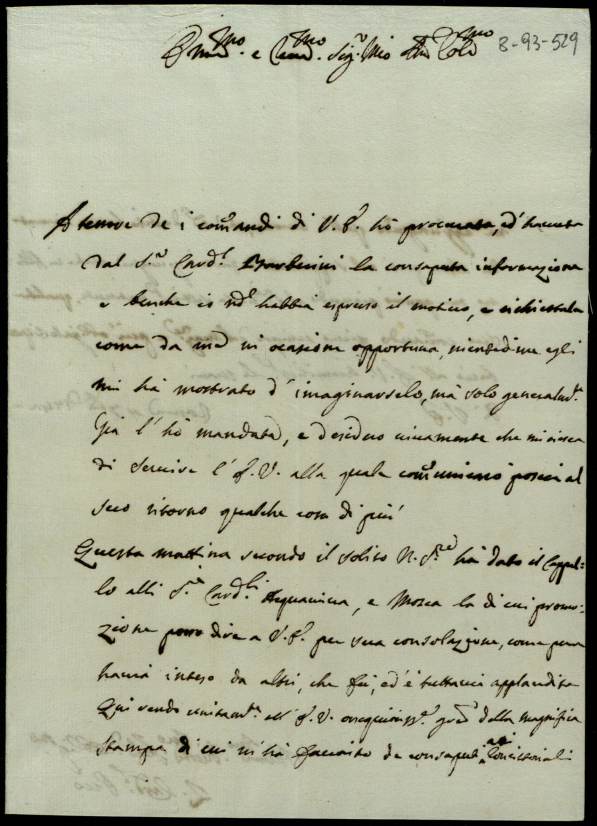 8-93-529
Em.mo e Rev.mo Sig.r Mio
A tenore de i com̃andi di V. E. hò procurata, ed' havuta
dal S.r Card.l Barberini la consaputa informazione
e benche io nõ habbia espresso il motivo, e richiestala
come da me in ocasione opportuna, nientedime egli
mi hà mostrato d'imaginarselo, mà solo generalm.te
Già l'hò mandata, e desidero vivamente che mi riesca
di servire l'E. V. alla quale com̃unicarò poscia al
suo ritorno qualche cosa di più
Questa mattina secondo il solito N. S.re hà dato il Cappel-
lo alli S.ri Card.li Aquaviva, e Mosca la di cui promo-
zione posso dire a V. E. per sua consolazione, come pure
havrà inteso da altri, che fù, ed'è tuttavia applaudita
Qui rendo unitam.te all' E. V. gr.e della magnifica
stampa di cui mi hà favorito da consaputi Concistoriali